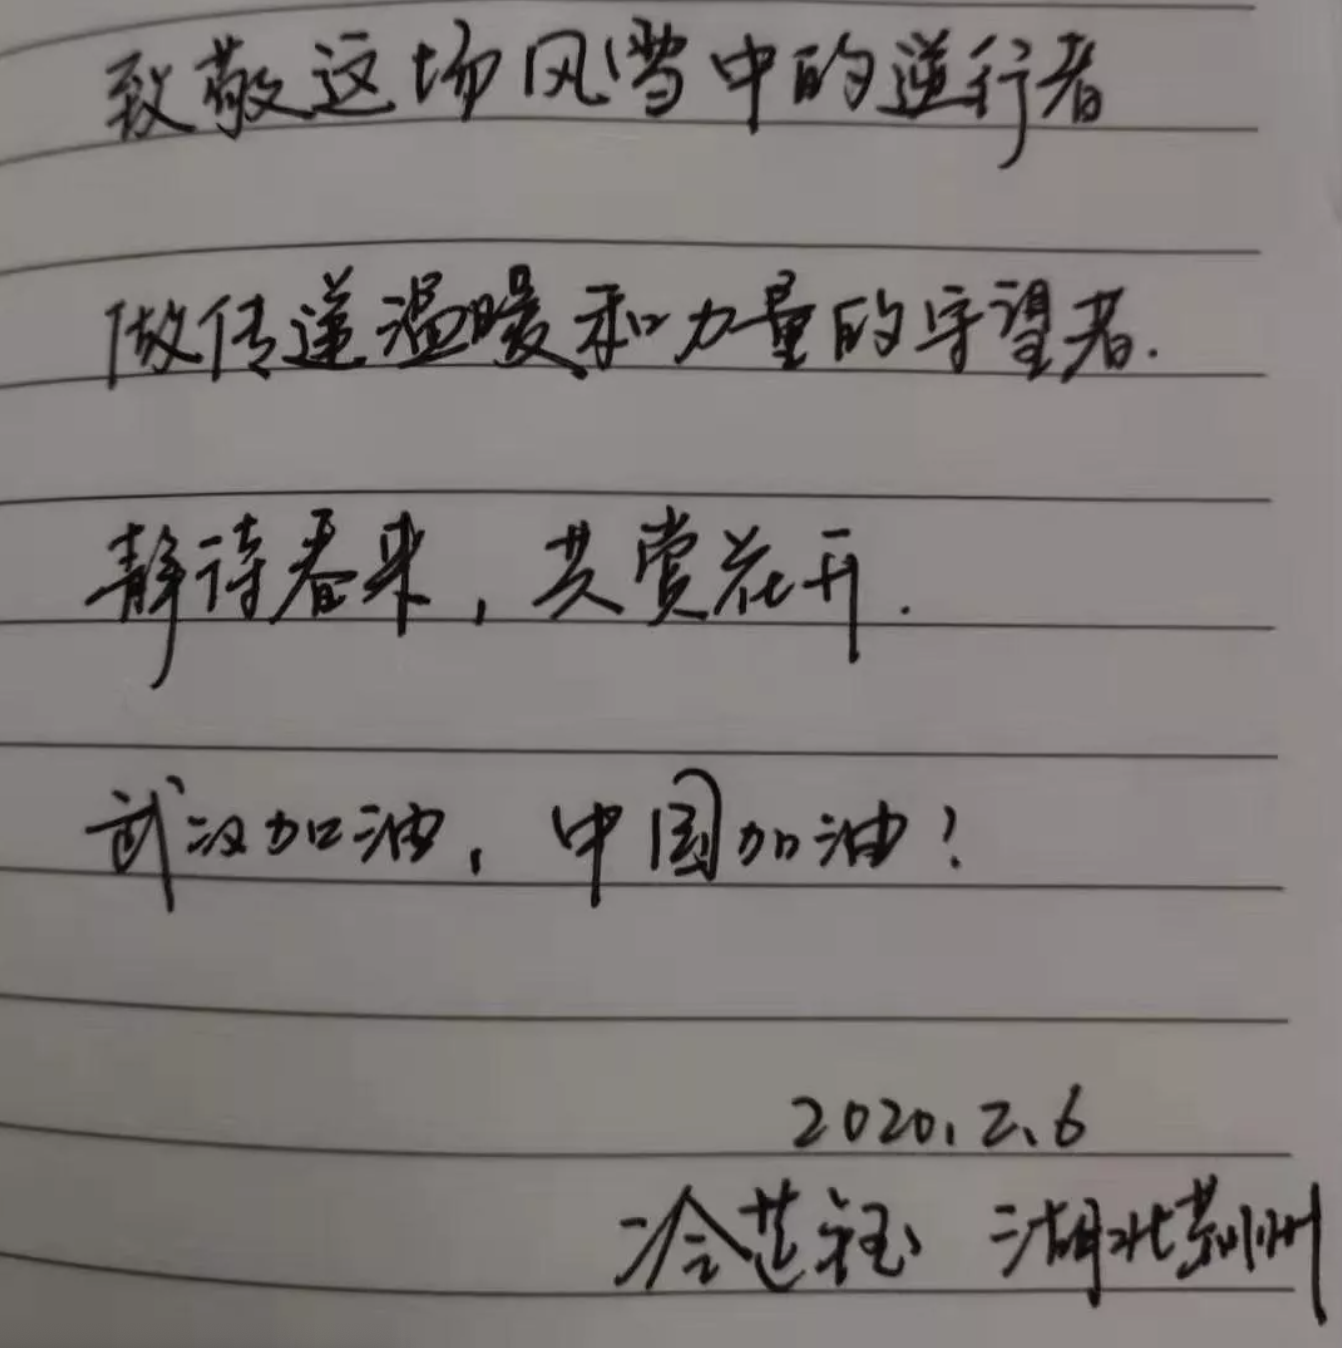 致敬这场风雪中的逆行者
做传递温暖和力量的守望者.
静待春来，共赏花开.
武汉加油，中国加油！
2020.2.6
冷芝钰 湖北荆州